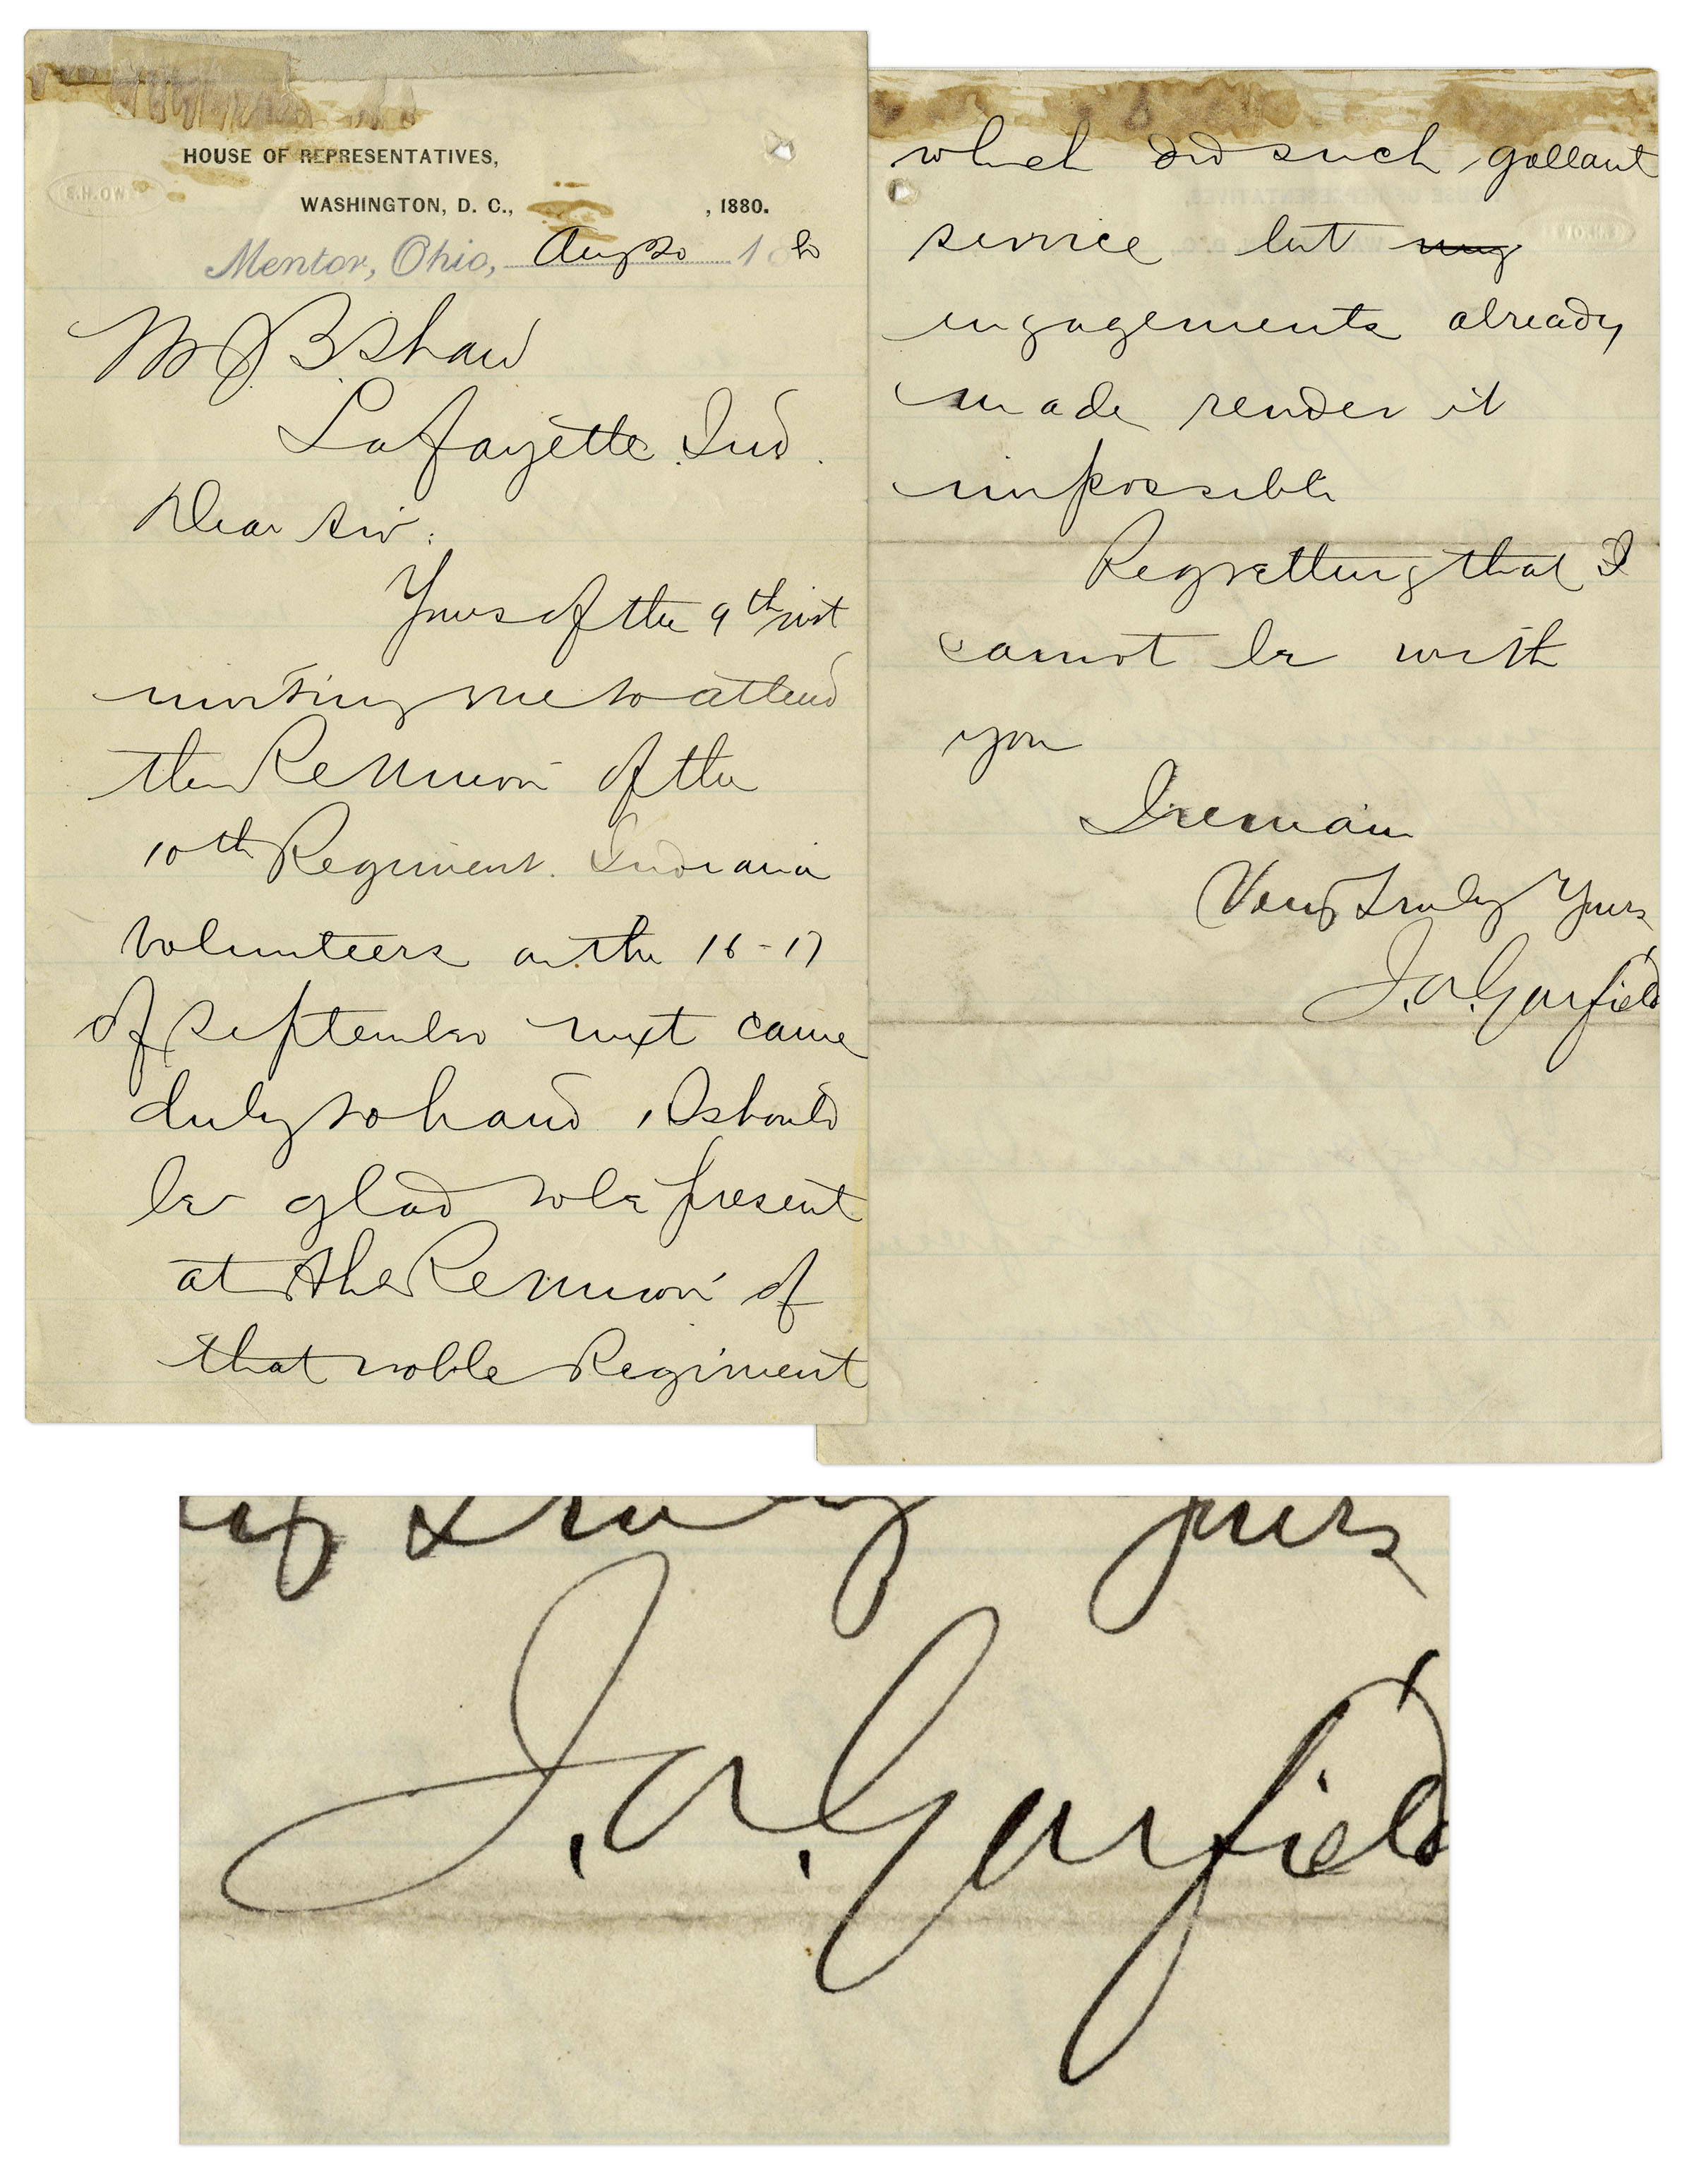 HOUSE OF REPRESENTATIVES,
WASHINGTON, D. C., , 1880.
Mentor, Ohio, Aug 20 1 80
B. Shaw
Lafayette. Ind.
Dear Sir:
Yours of the 9th inst
inviting me to attend
the Reunion of the
10th Regiment. Indiana
Volunteers on the 16-17
of September next came
duly to hand, I should
be glad to be present
at the Reunion of
that noble Regiment
which did such gallant
service but my
engagements already
made render it
impossible
Regretting that I
cannot be with
you
I remain
Very Truly Yours
J. A. Garfield
Truly Yours
J. A. Garfield